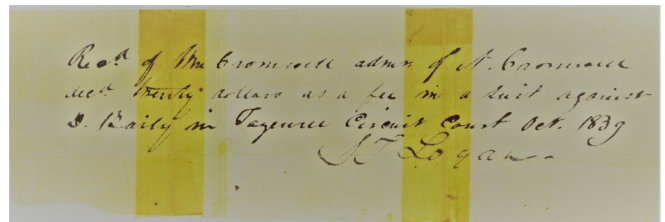 Recd. of Wm Cromwell admr of N. Cromwell
decd. twenty dollars as a fee in a suit against
D. Baily in Tazewell Circuit Court Oct. 1839
S T Logan